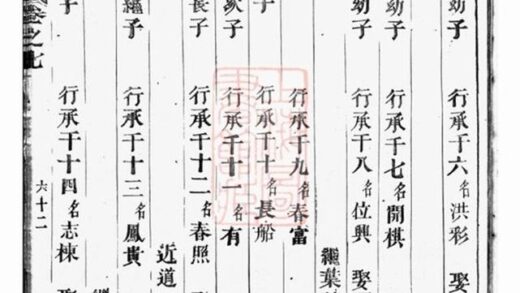 幼子 行承千六 名洪彩 娶
幼子 行承千七 名開棋
幼子 行承千八 名位興 娶
繼葉
子 行承千九 名春富
子 行承千十 名長船
次子 行承千十一 名有
長子 行承千十二 名春照
近道
繼子 行承千十三 名鳳貴
子 行承千十四 名志棟
卷之七
六十二